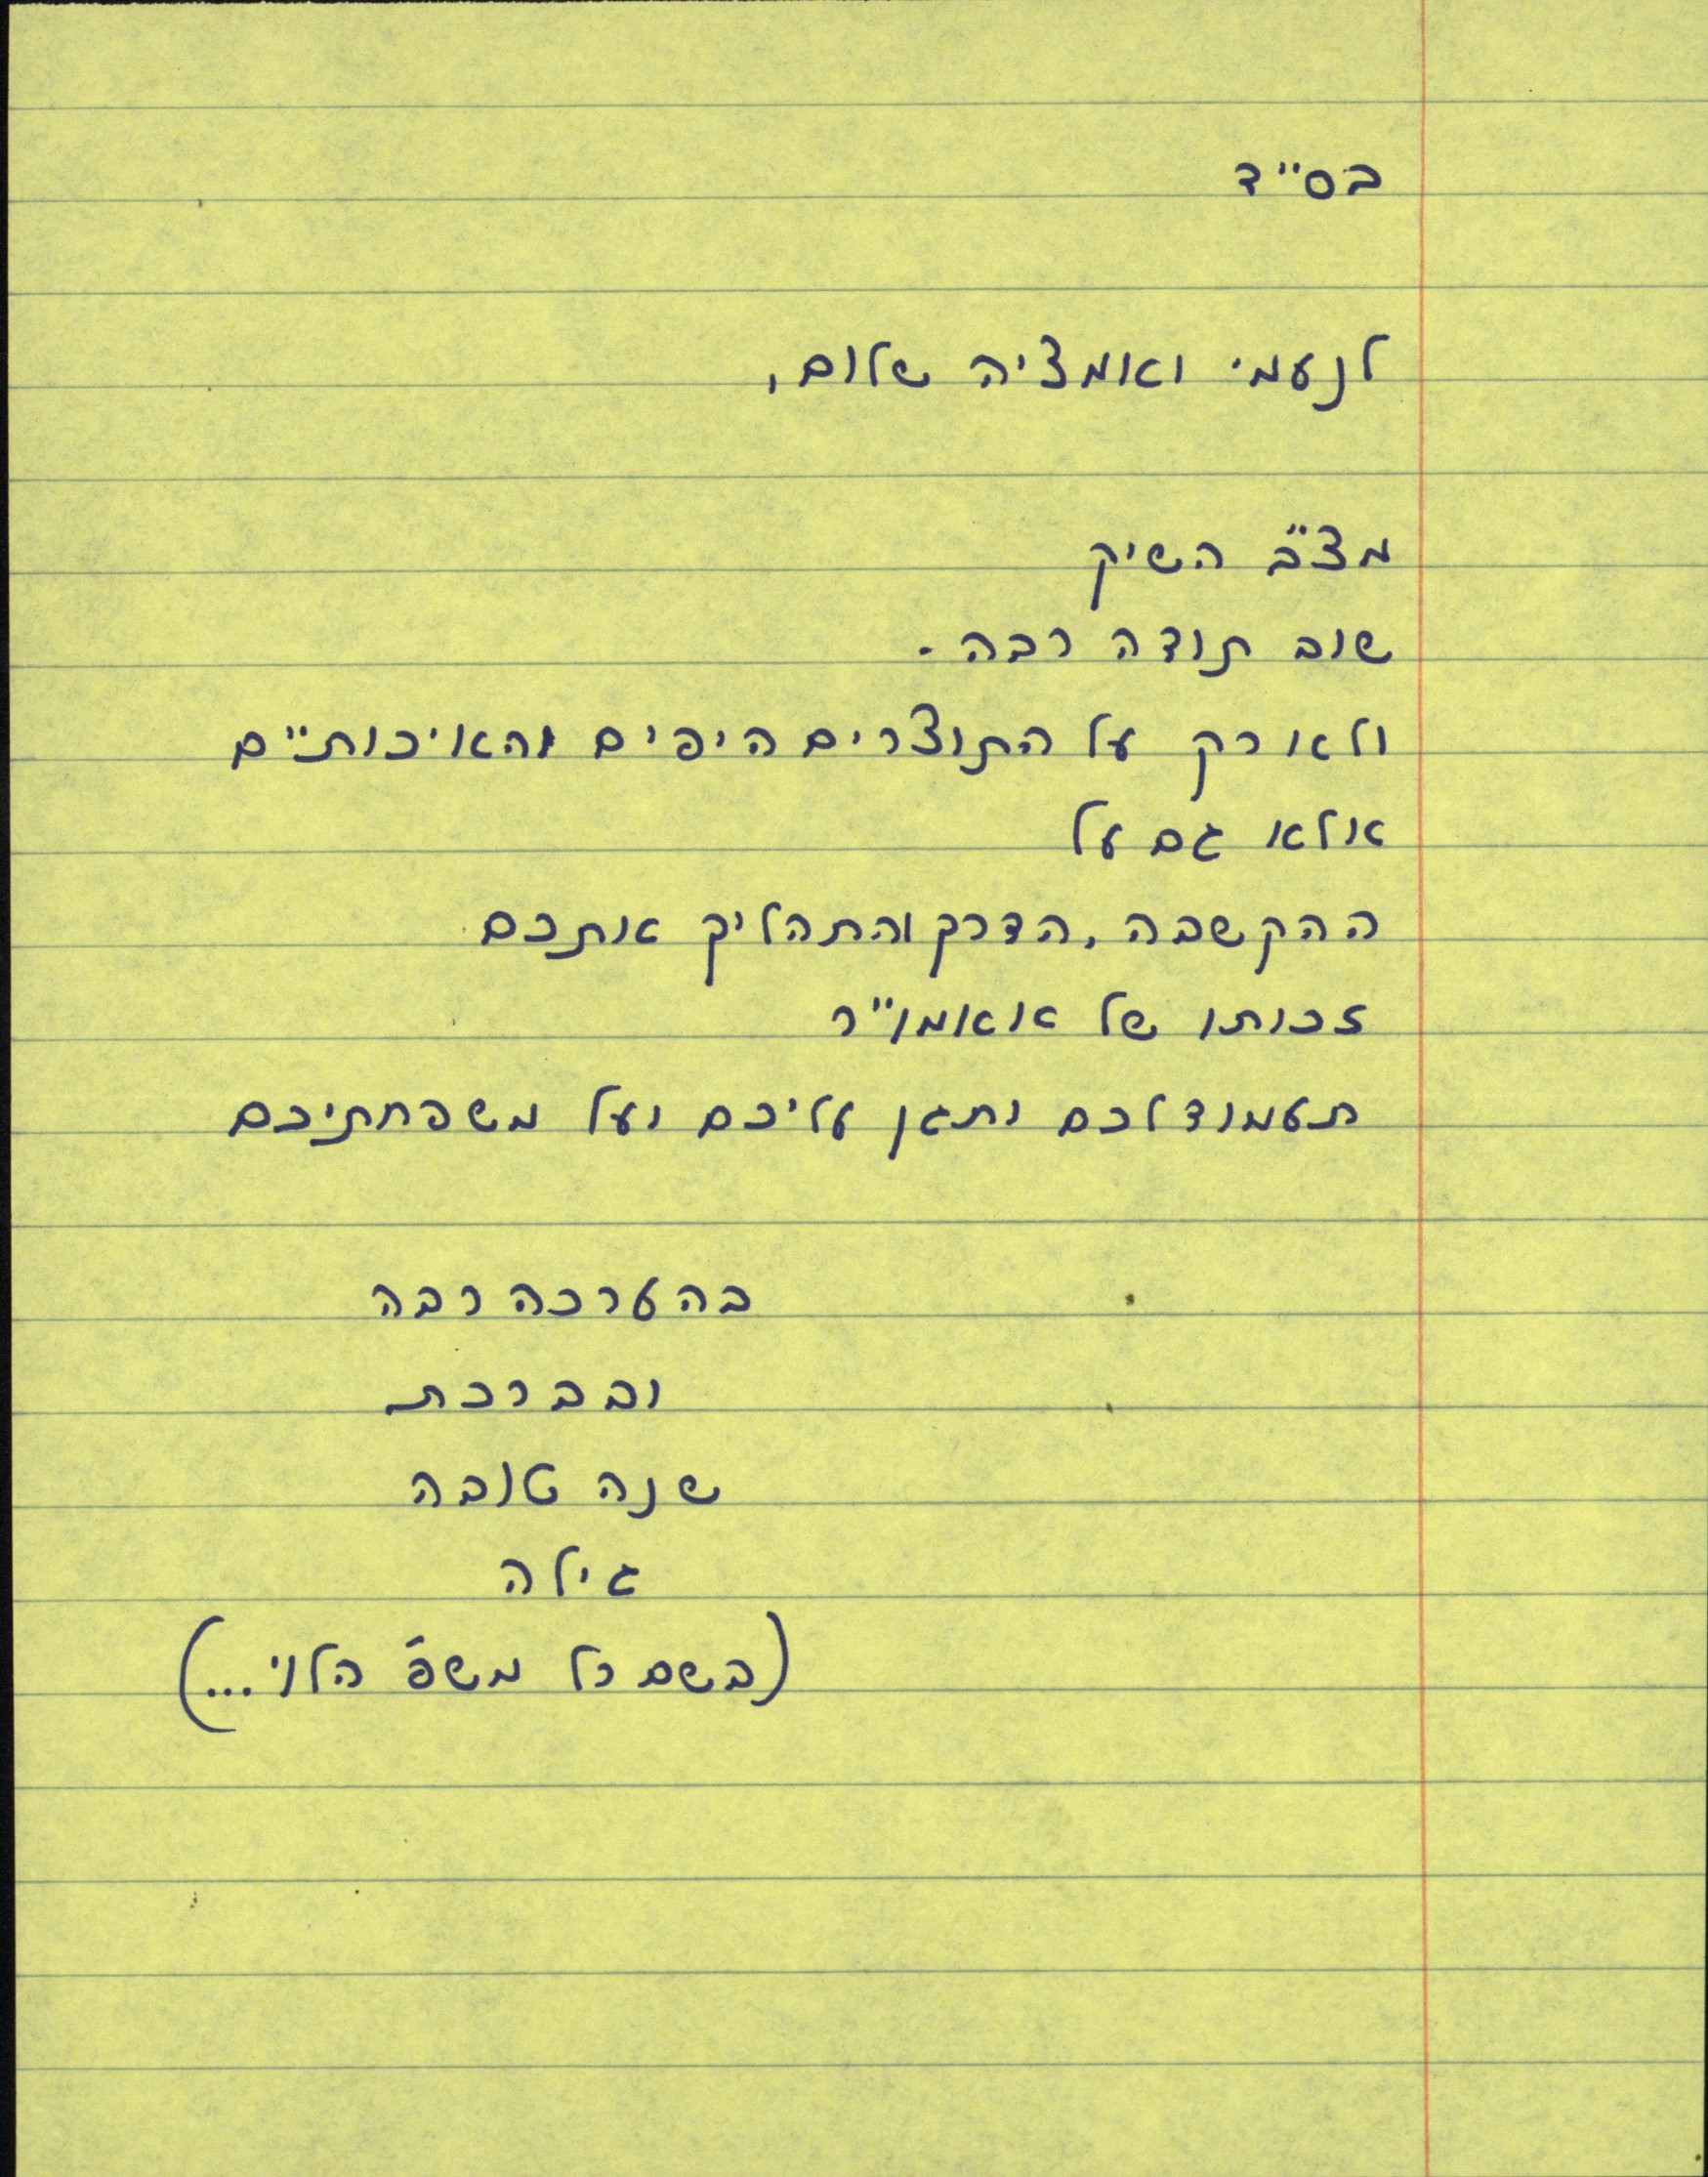 בס"ד
לנעמי ואמציה שלום,
מצ"ב השיק
שוב תודה רבה.
ולא רק על התוצרים היפים והאיכותיים
אלא גם על
ההקשבה, הדרך והתהליך אתכם
זכותו של אאמו"ר
תעמוד לכם ותגן עליכם ועל משפחתיכם
בהערכה רבה
ובברכת
שנה טובה
גילה
(בשם כל משפ' הלוי...)